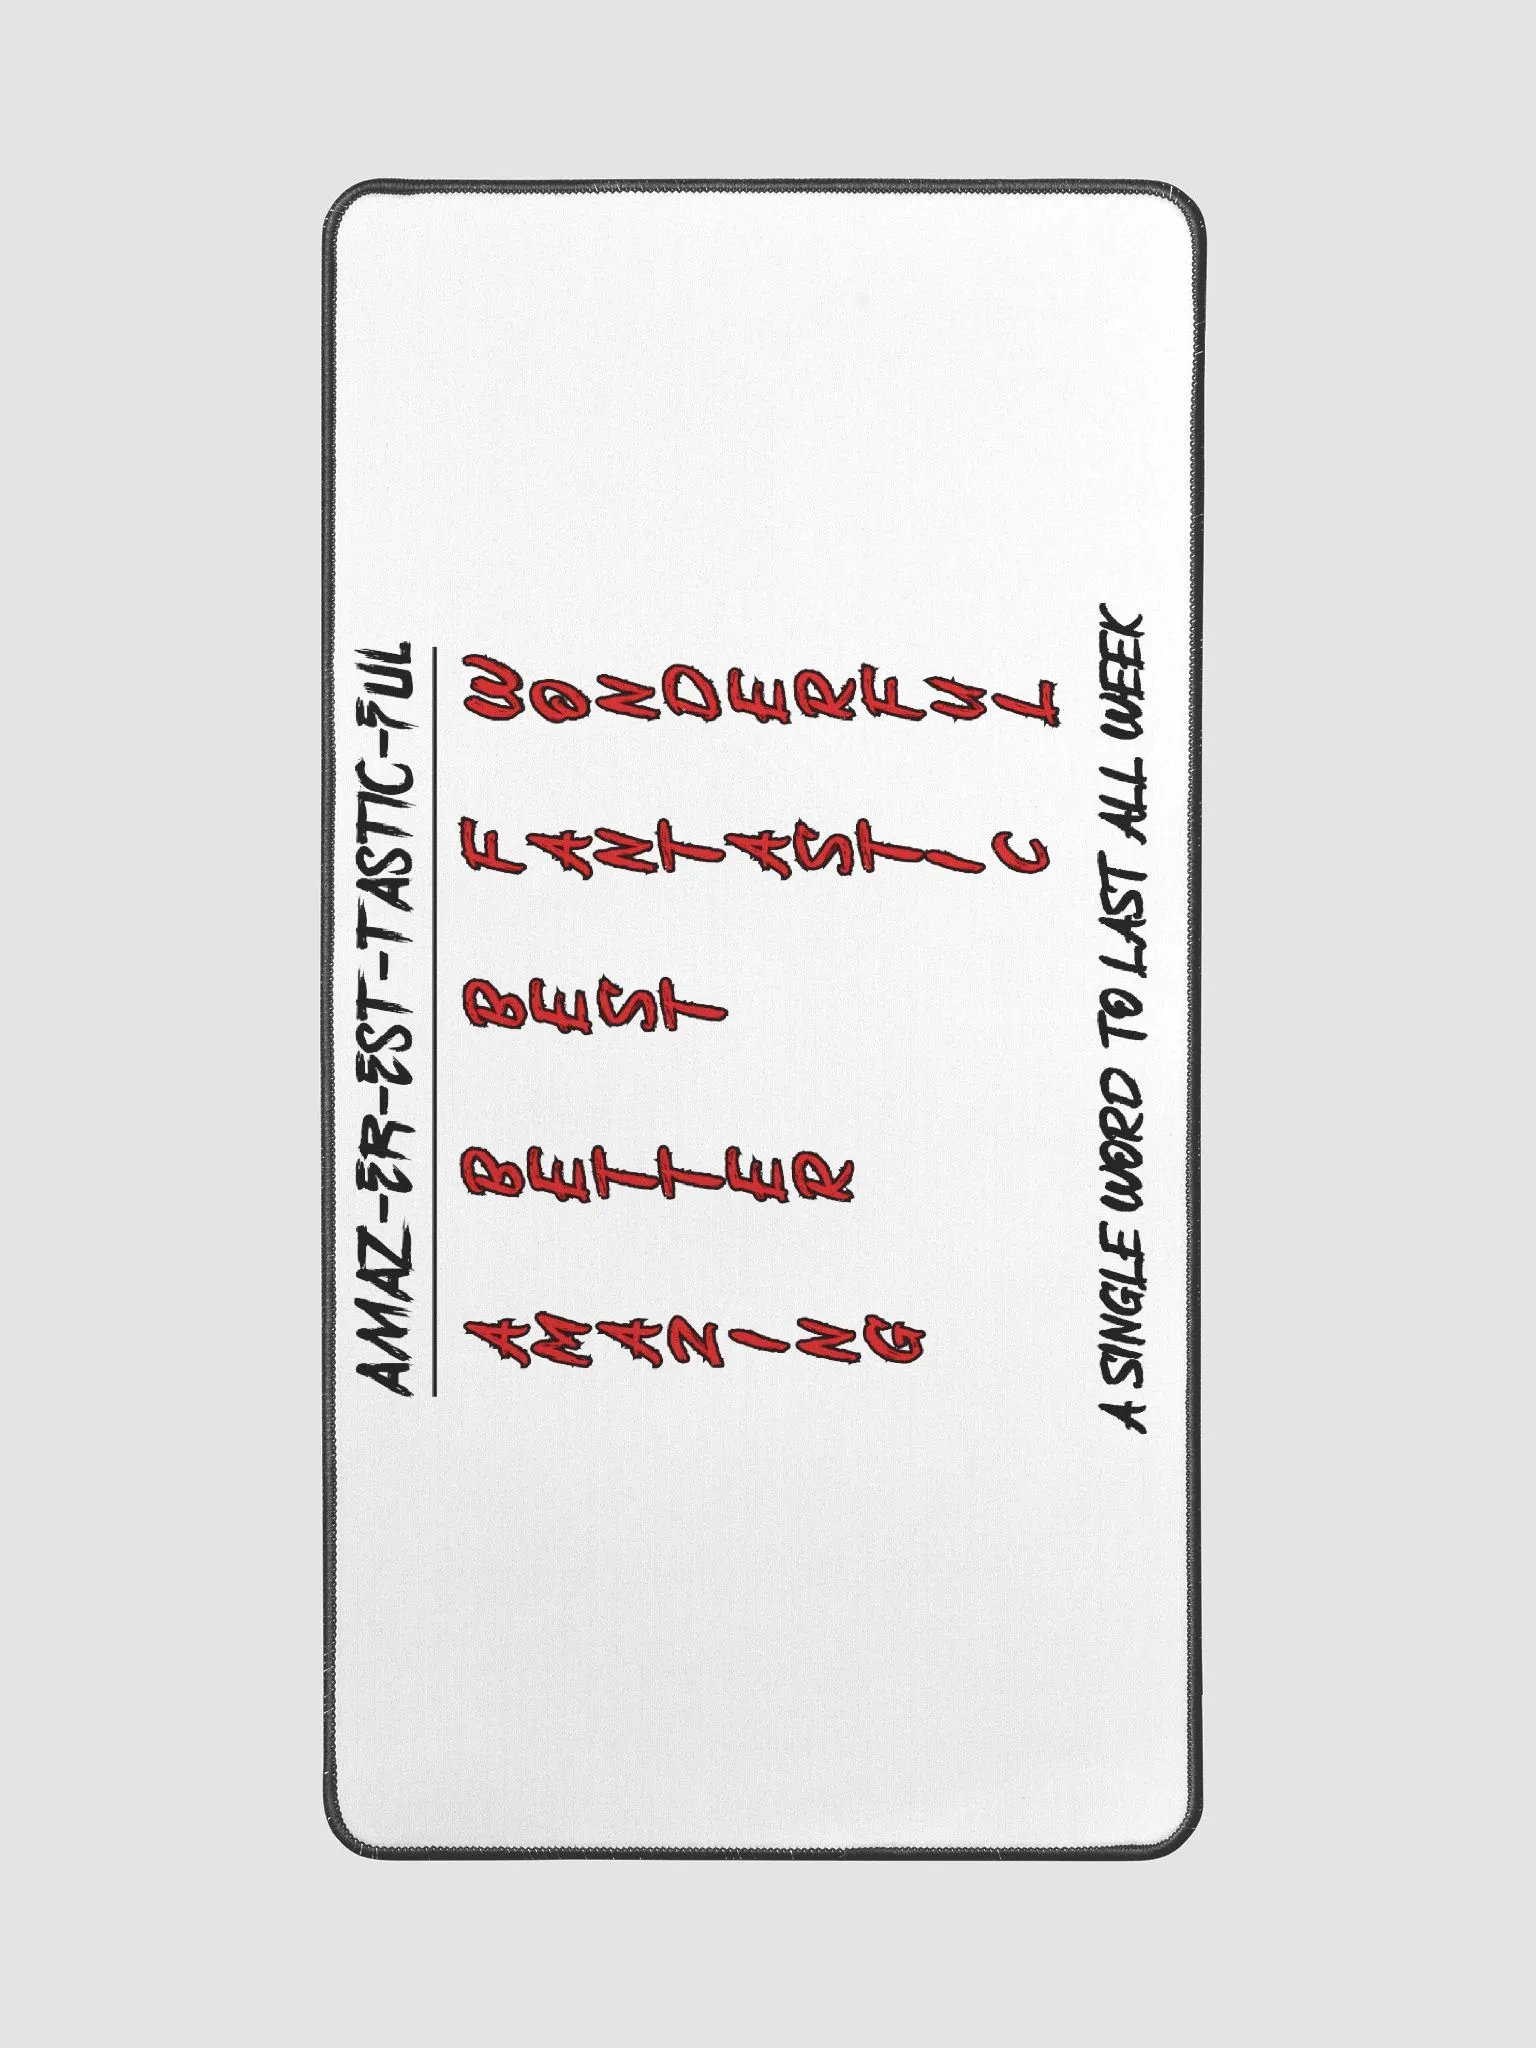 AMAZ-ER-EST-TASTIC-FUL
AMAZING
BETTER
BEST
FANTASTIC
WONDERFUL
A SINGLE WORD TO LAST ALL WEEK